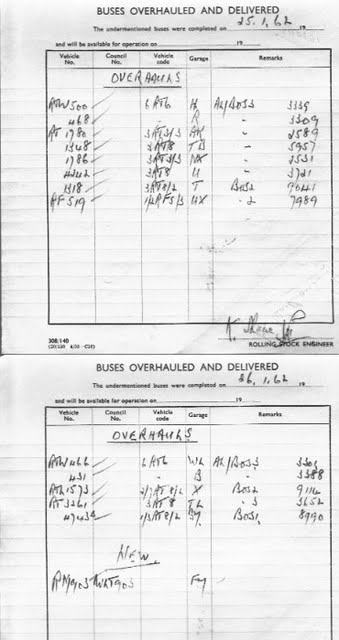 BUSES OVERHAULED AND DELIVERED
The undermentioned buses were completed on 25.1.62 19
and will be available for operation on 19
Vehicle No. Council No. Vehicle code Garage Remarks
OVERHAULS
RTW 500 6RT6 H AL/BOSS 3339
468 - R - 3309
RT 1780 3RT3/3 AK - 2589
1348 3RT8 TB - 5957
1786 3RT3/3 NX - 2531
4242 3RT8 U - 3721
1318 3RT8/2 T BOS2 9041
RF 519 HX - 2 7989
308/140
ROLLING STOCK ENGINEER
BUSES OVERHAULED AND DELIVERED
The undermentioned buses were completed on 26.1.62 19
and will be available for operation on 19
Vehicle No. Council No. Vehicle code Garage Remarks
OVERHAULS
RTW 466 6RT6 WL AL/BOS3
431 - B - 3388
RTL 1573 X BOS2
RT 3261 3RT8 TL - 3 3652
BOS1 8990
NEW
RM903 WLT903 FY